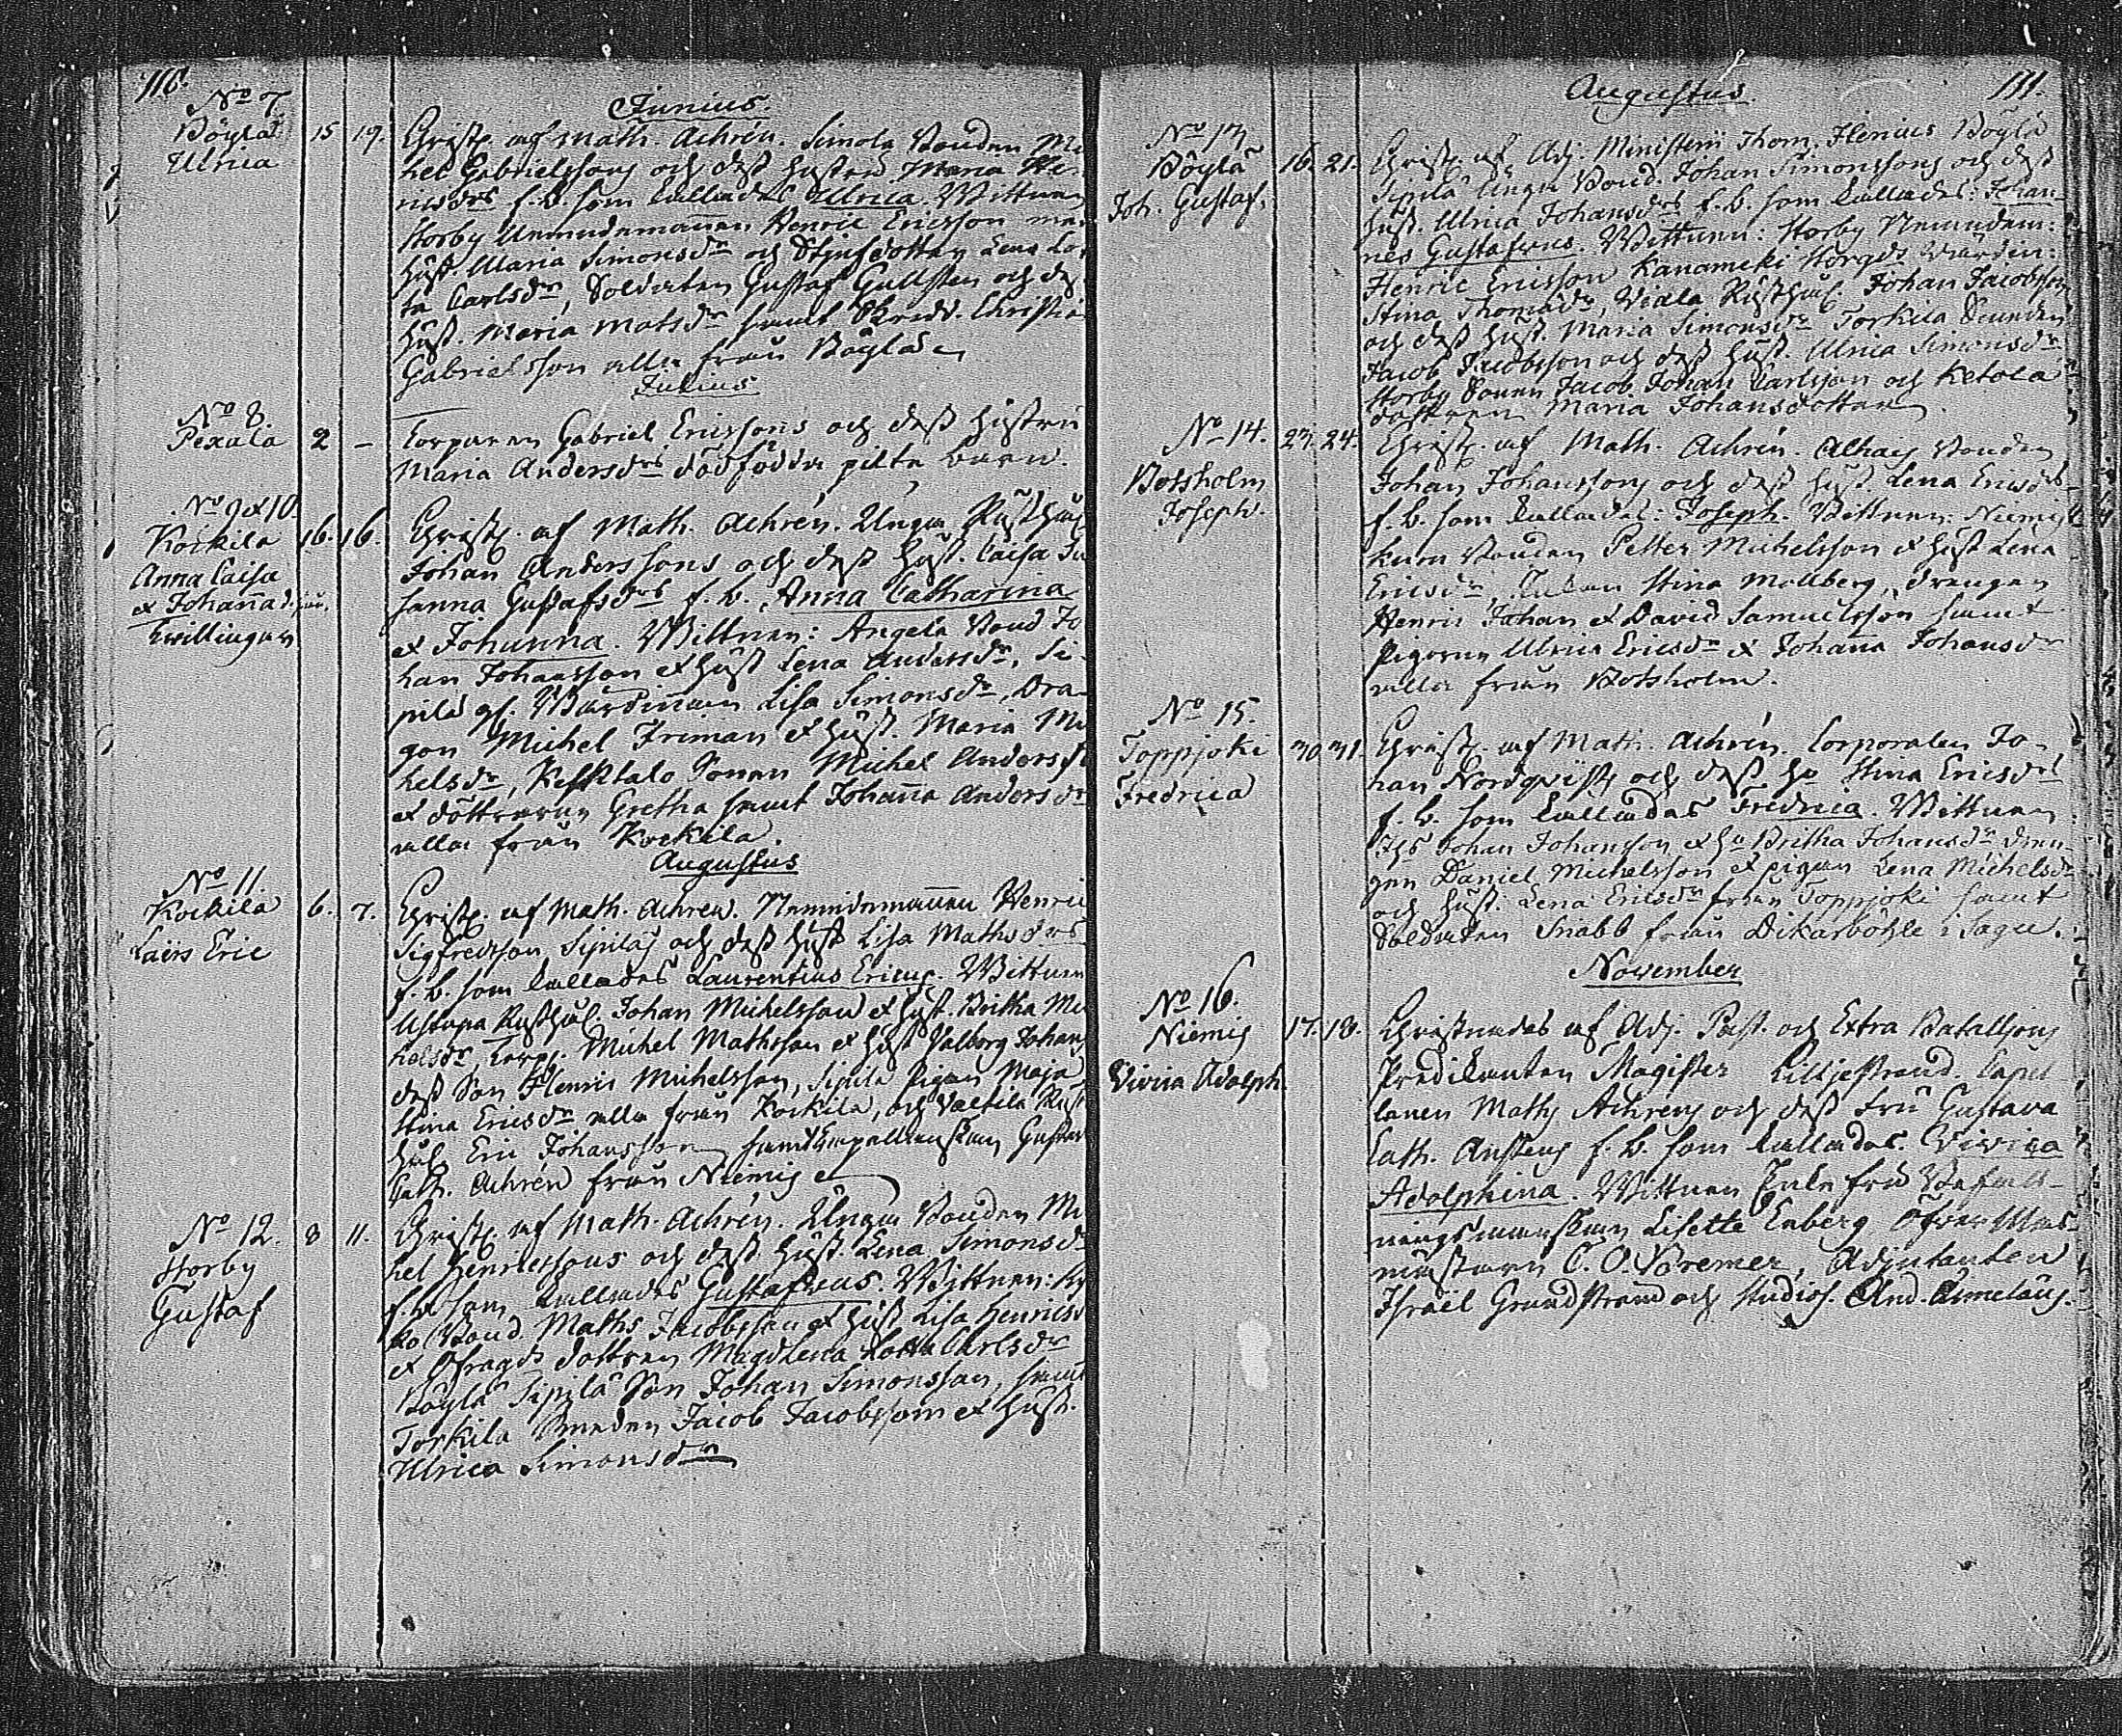 110.
Junius.
No 7
Böylä
Ulrica
15 19. Christ. af Math. Achrén. Simola Bonden Mi
chel Gabrielssons och dess hustru Maria Hen
ricsdrs f. b. som kallades Ulrica. Wittnen
Storby Nämndemannen Henric Ericsson med
hust. Maria Simonsdr och Styfdottren Lena Lot
ta Carlsdr, Soldaten Gustaf Gullsten och dess
hust. Maria Matsdr samt Christi
Gabrielsson alla från Böylä
Julius
No 8.
Pexala
2 – Torparen Gabriel Ericssons och dess hustru
Maria Andersdrs dödfödda pilte barn.
No 9 et 10.
Kockila
Anna Caisa
et Johanna
Twillingar
16. 16. Christ. af Math. Achrén. Unga Rusth.
Johan Anderssons och dess hust. Caisa Su
sanna Gustafsdrs f. b. Anna Catharina
et Johanna. Wittnen: Angela Bond Jo
han Johansson et hust Lena Andersdr, Si-
pilä gl. Wärdinnan Lisa Simonsdr, Dra-
gon Michel Friman et hust. Maria Mi
chelsdr, Keskitalo Sonen Michel Anderss
et döttrarna Gretha samt Johanna Andersdr
alla från Kockila.
Augustus
No 11.
Kockila
Lars Eric
6. 7. Christ. af Math. Achrén. Nämndemannen Henric
Sigfredsson Sipiläs och dess hust Lisa Mathsdrs
f. b. som kallades Laurentius Ericus. Wittnen
Ustupa Rusthål. Johan Michelsson et hust. Britha Mi
chelsdr, Torp. Michel Mathsson et hust Valborg Johans
dess Son Henric Michelsson, Sipilä Pigan Maja
Stina Ericsdr alla från Kockila, och Valtila Rust
hål Eric Johansson samt Capellanskan Gustava
Cath. Achrén från Niemis
No 12.
Storby
Gustaf
8 11. Christ. af Math. Achrén. Unga Bonden Mi
chel Henricssons och dess hust. Lena Simonsdr
f. b. som kallades Gustafvus. Wittnen:
Bond. Maths Jacobsson et hust Lisa Henricsd
et dottren Magdlena Lotta Carlsdr
Böylä Sipilä Son Johan Simonsson, samt
Torkila Bonden Jacob Jacobsson et hust.
Ulrica Simonsdr
111.
Augustus.
No 13
Böylä
Joh. Gustaf.
16. 21. Christ. af Adj. Ministerii Thom. Flenius Böylä
Sipilä Unga Bond. Johan Simonssons och dess
hust. Ulrica Johansdrs f. b. som kallades: Johan-
nes Gustafvus. Wittnen: Storby Nemndem:
Henric Ericsson Kanamäki Storgds Wärdin:
Stina Thomasdr, Viala Rusthål. Johan Jacobsson
och dess hust. Maria Simonsdr Torkila Bonden
Jacob Jacobsson och dess hust. Ulrica Simonsdr
Storby Sonen Jacob Johan Carlsson och Ketola
dottren Maria Johansdotter.
No 14.
Botsholm
Joseph.
23. 24. Christ. af Math. Achrén. Alhais Bonden
Johan Johanssons och dess hust. Lena Ericsdrs
f. b. som kallades: Joseph. Wittnen: Niemis
Bonden Petter Michelsson et hust Lena
Ericsdr, Stina Mollberg, drengen
Henric Johan et David Samuelsson samt
Pigorna Ulrica Ericsdr et Johanna Johansdr
alla från Botsholm.
No 15.
Toppjoki
Fredrica
30 31. Christ. af Math. Achrén. Corporalen Jo-
han Nordqvists och dess hu Stina Ericsdrs
f. b. som kallades Fredrica. Wittnen
Johan Johansson et hu Britha Johansdr dren-
gen Daniel Michelsson et pigan Lena Michelsdr
och hust. Lena Ericsdr från Toppjoki samt
Soldaten Snabb från Dikarböhle i Sagu.
November
No 16.
Niemis
Vivica Adolph.
17. 18. Christnades af Adj. Past. och Extra Bataljons
Predikanten Magister Lilljestrand. Capel-
lanen Maths Achrens och dess Fru Gustava
Cath. Anstens f. b. som kallades Viviga
Adolphina. Wittnen Enke fru Befall-
ningsmanskan Lisette Enberg Öfver Mas-
mästaren C. O. Bremer, Adjutanten
Israël Grundstrand och Studios. And. Aimelæus.